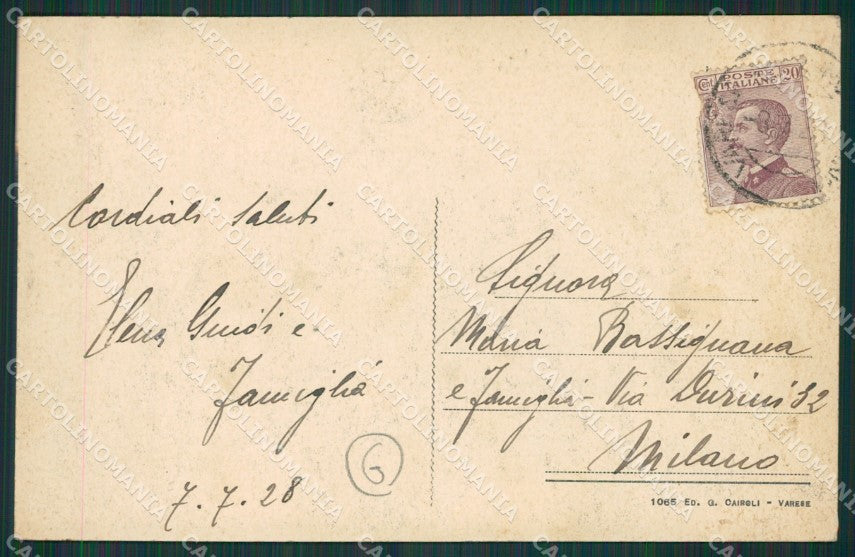 Cent 20
POSTE
ITALIANE
Cordiali saluti
Elena Guidi e
famiglia
7.7.28
G
Signora
Maria Bassignana
e famiglia - Via Durini 32
Milano
1065 ED. G. CAIROLI - VARESE
CARTOLINOMANIA